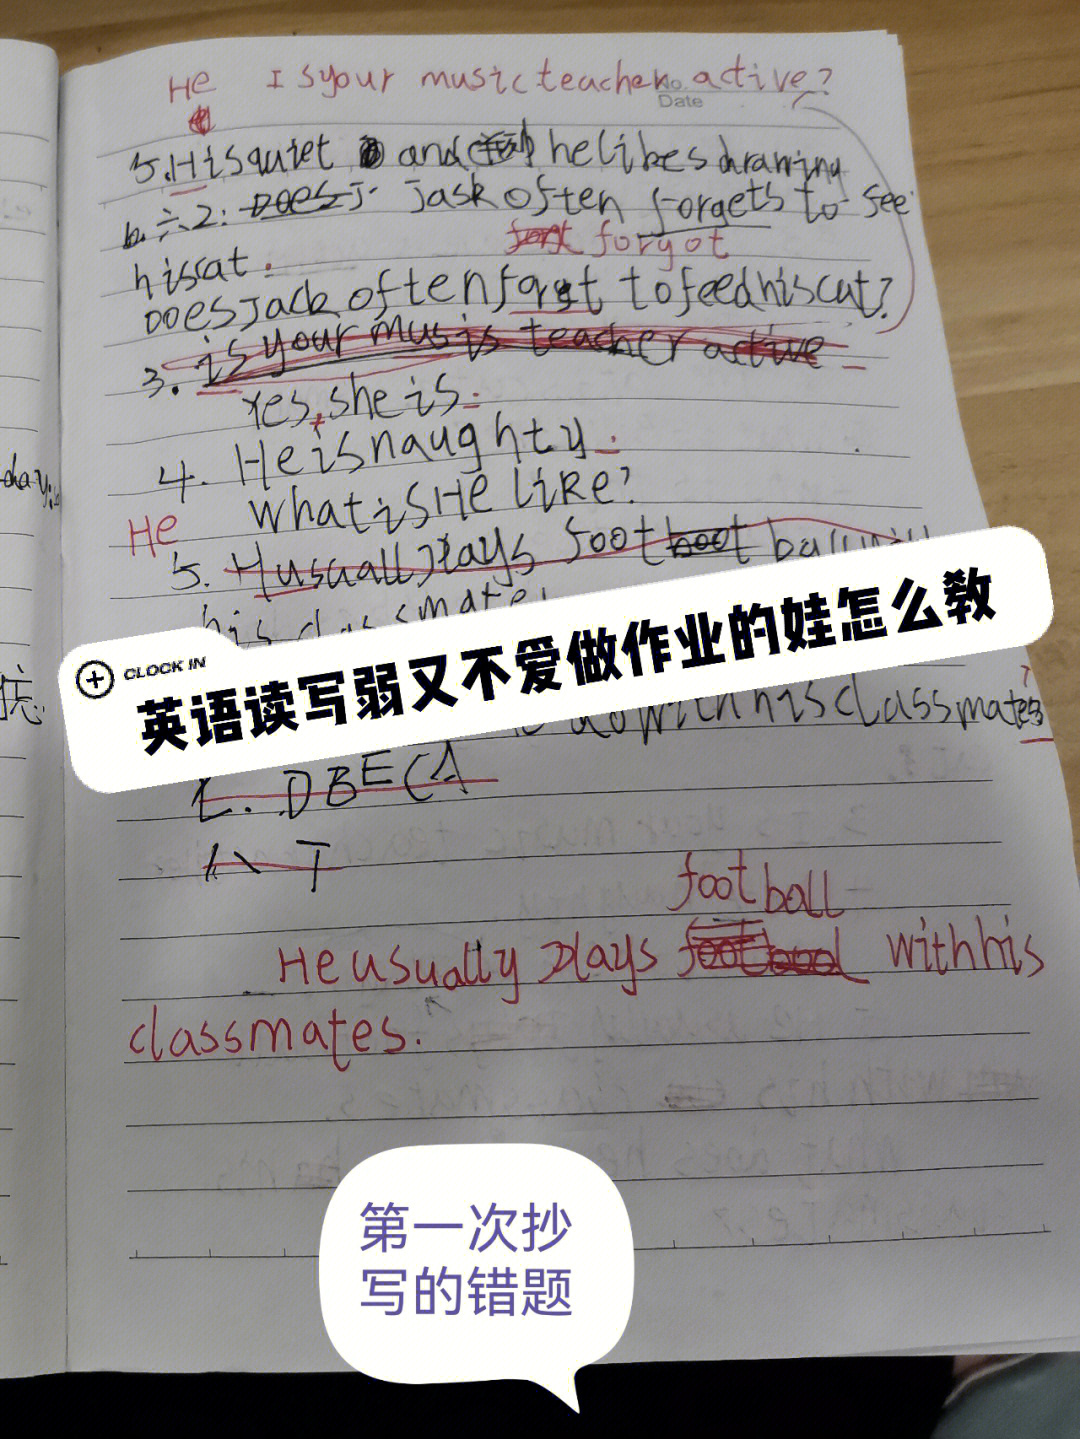 He Is your music teacher active?
No.
Date
5. H is quiet and he likes drawing
6. 六 2: Does J jask often forgets to see
forgot
his cat.
Does Jack often forgt to feed his cat?
3. is your musis teacher active
Yes, she is.
4. He is naughty.
what is He like?
He
5. H usually plays foot boot ball with
his classmates
CLOCK IN
英语读写弱又不爱做作业的娃怎么教
do with his classmates
七. D B E C A
八 T
football
He usually plays with his
classmates.
第一次抄
写的错题